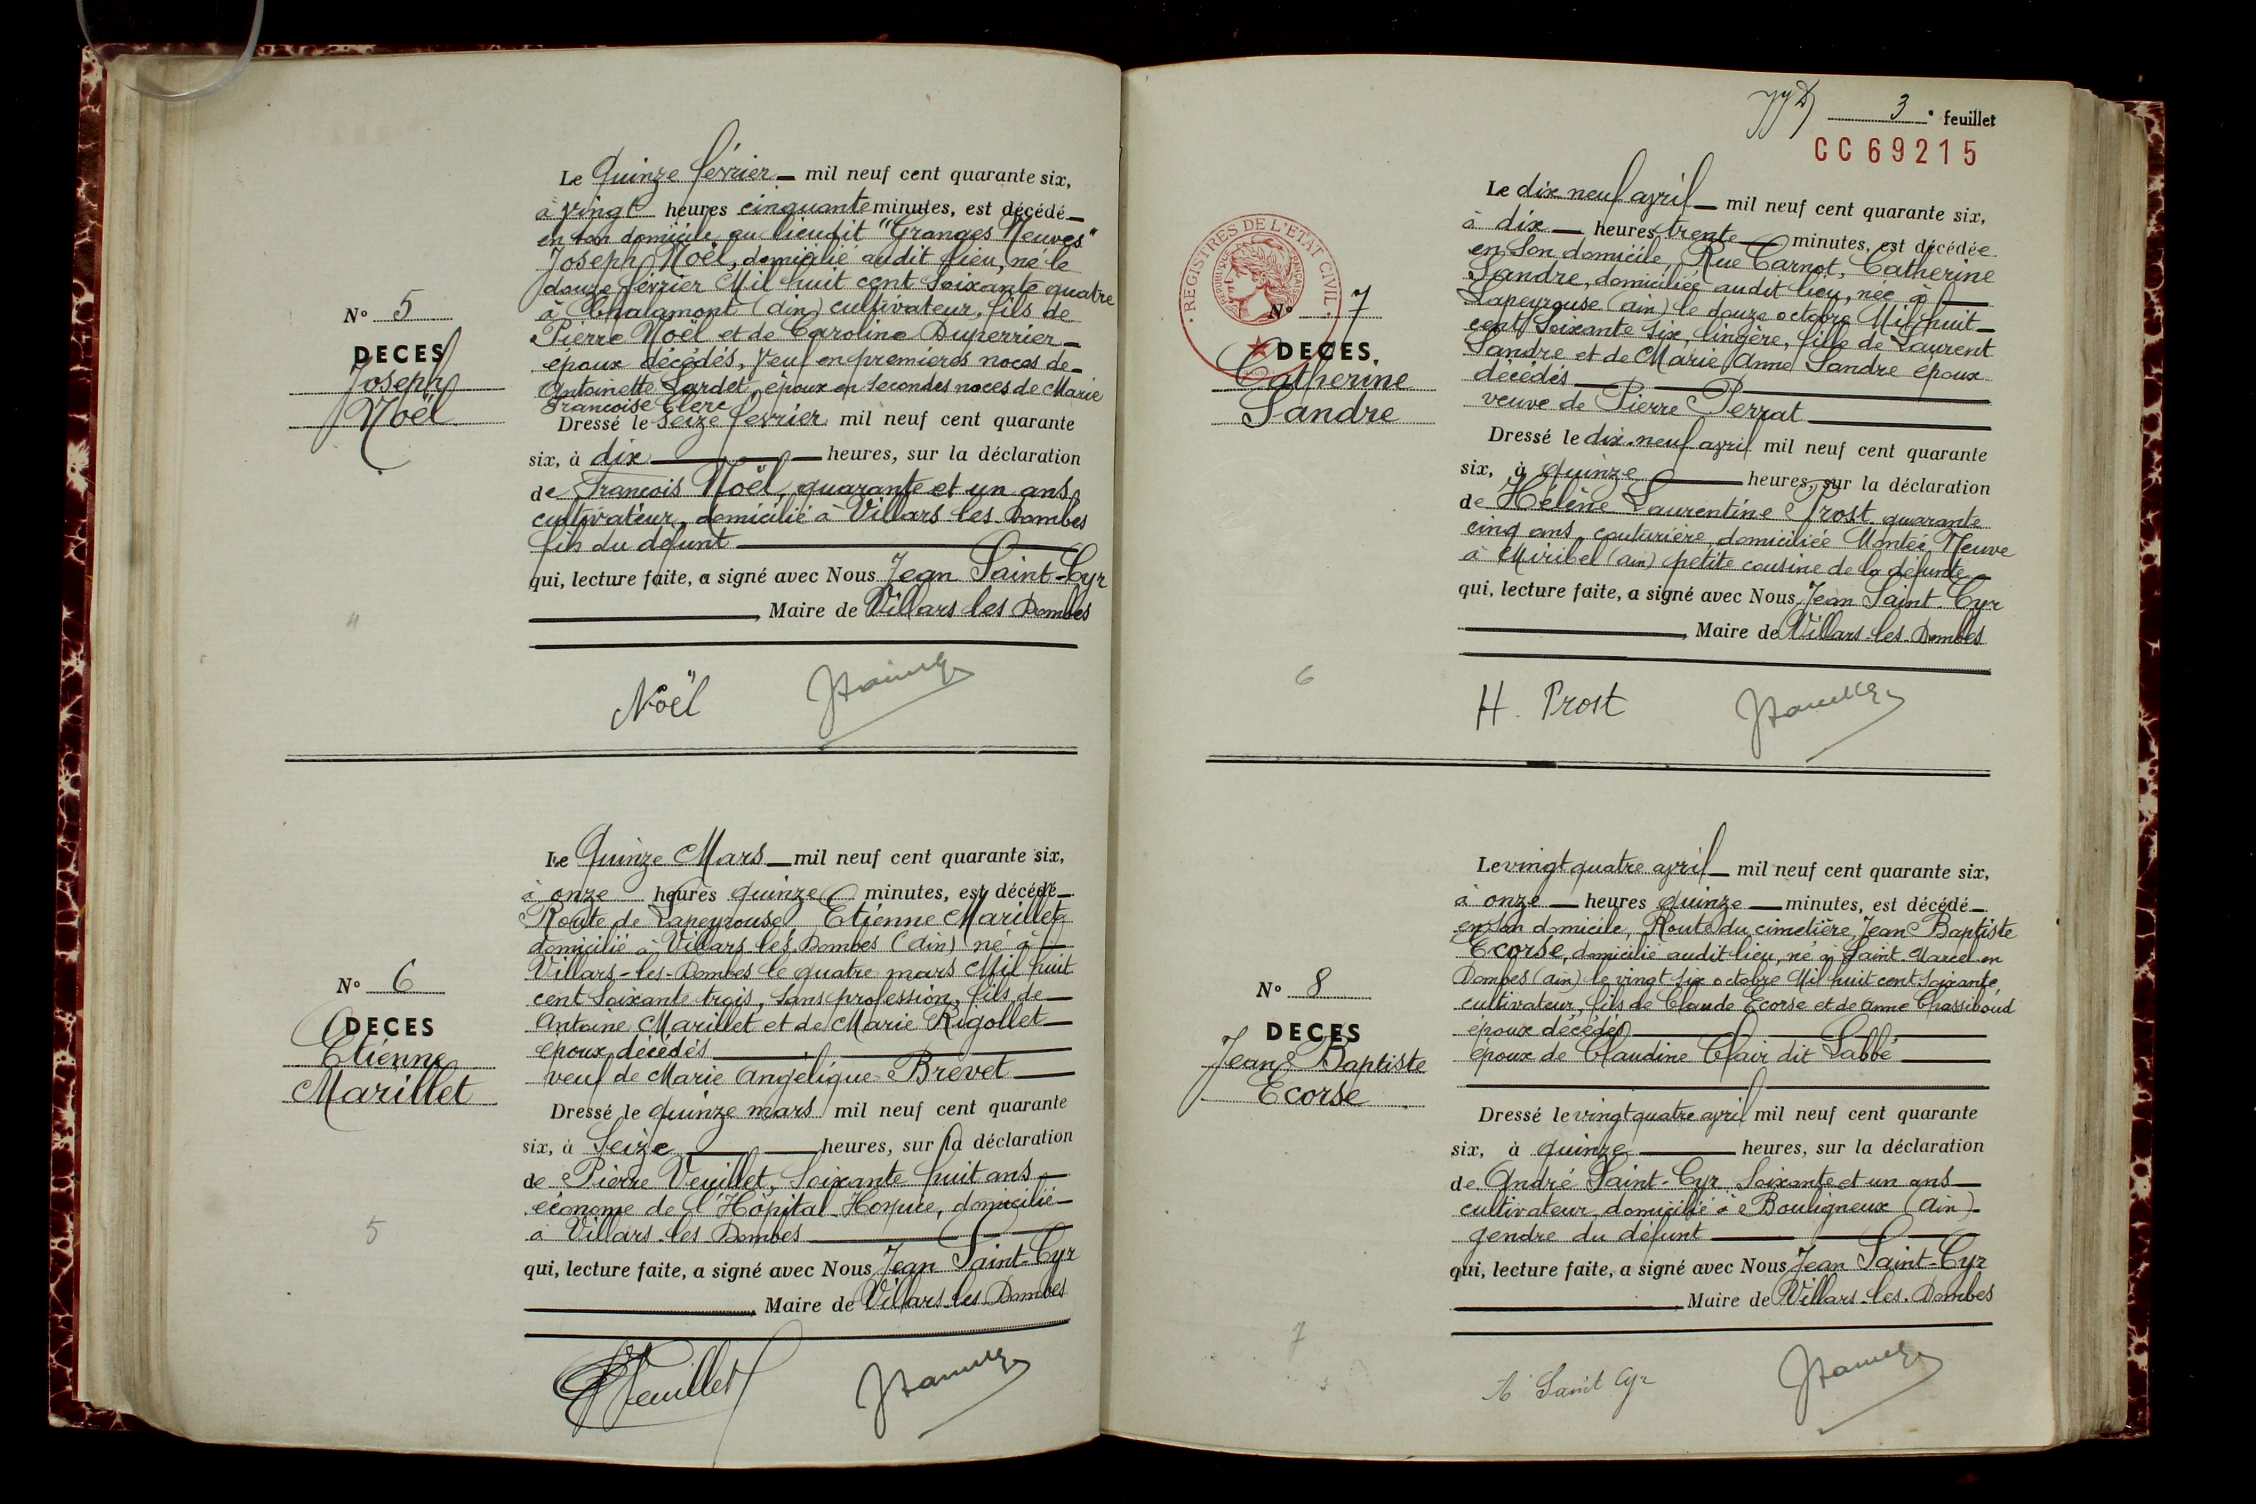 Le Quinze février mil neuf cent quarante six,
à vingt heures cinquante minutes, est décédé
en son domicile au lieudit "Granges Neuves"
Joseph Noël, domicilié audit lieu, né le
douze février Mil huit cent soixante quatre
à Chalamont (ain) cultivateur, fils de
Pierre Noël et de Caroline Duperrier
époux décédés, veuf en premières noces de
Antoinette Lardet, époux en secondes noces de Marie
Françoise Clerc
N° 5
DECES
Joseph
Noël
Dressé le seize février mil neuf cent quarante
six, à dix heures, sur la déclaration
de François Noël, quarante et un ans,
cultivateur, domicilié à Villars les Dombes
fils du défunt
qui, lecture faite, a signé avec Nous Jean Saint-Cyr
Maire de Villars les Dombes
4
Noël
Le Quinze Mars mil neuf cent quarante six,
à onze heures quinze minutes, est décédé
Route de Lapeyrouse Etienne Marillet
domicilié à Villars les Dombes (ain) né à
Villars-les-Dombes le quatre mars Mil huit
cent soixante trois, sans profession, fils de
Antoine Marillet et de Marie Rigollet
époux décédés
veuf de Marie Angélique Brevet
N° 6
DECES
Etienne
Marillet
Dressé le quinze mars mil neuf cent quarante
six, à Seize heures, sur la déclaration
de Pierre Veuillet, soixante huit ans
économe de l'Hôpital-Hospice, domicilié
à Villars-les-Dombes
qui, lecture faite, a signé avec Nous Jean Saint-Cyr
Maire de Villars les Dombes
5
Veuillet
3e feuillet
CC69215
REGISTRES DE L'ETAT CIVIL
REPUBLIQUE FRANÇAISE
Le dix neuf avril mil neuf cent quarante six,
à dix heures trente minutes, est décédée
en son domicile, Rue Carnot, Catherine
Sandre, domiciliée audit lieu, née à
Lapeyrouse (ain) le douze octobre Mil huit
cent soixante six, lingère, fille de Laurent
Sandre et de Marie Anne Sandre époux
décédés
veuve de Pierre Perrat
N° 7
DECES
Catherine
Sandre
Dressé le dix-neuf avril mil neuf cent quarante
six, à quinze heures, sur la déclaration
de Hélène Laurentine Prost quarante
cinq ans, couturière, domiciliée Montée Neuve
à Miribel (ain) petite cousine de la défunte
qui, lecture faite, a signé avec Nous Jean Saint-Cyr
Maire de Villars-les-Dombes
6
H. Prost
Le vingt quatre avril mil neuf cent quarante six,
à onze heures quinze minutes, est décédé
en son domicile, Route du cimetière, Jean Baptiste
Ecorse, domicilié audit lieu, né à Saint Marcel en
Dombes (ain) le vingt six octobre Mil huit cent soixante,
cultivateur, fils de Claude Ecorse et de Anne Chassiboud
époux décédés
époux de Claudine Clair dit Labbé
N° 8
DECES
Jean Baptiste
Ecorse
Dressé le vingt quatre avril mil neuf cent quarante
six, à quinze heures, sur la déclaration
de André Saint-Cyr soixante et un ans
cultivateur, domicilié à Bouligneux (ain)
gendre du défunt
qui, lecture faite, a signé avec Nous Jean Saint-Cyr
Maire de Villars-les-Dombes
7
A Saint Cyr